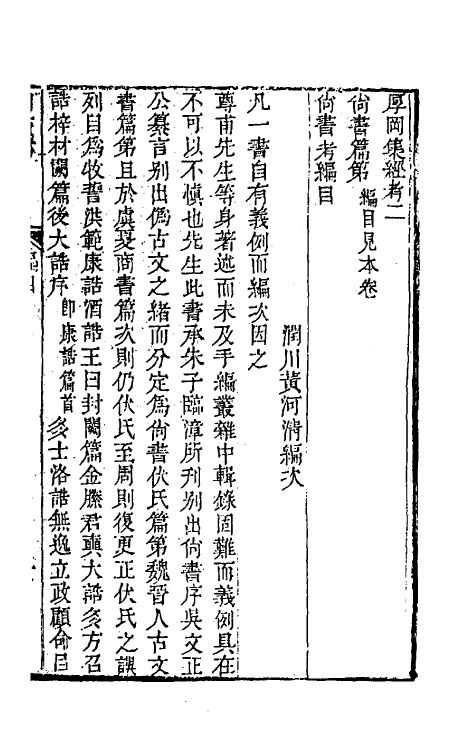 厚岡集經考二
尚書篇第 編目見本卷
尚書考編目
潤川黃河清編次
凡一書自有義例而編次因之
尊甫先生等身著述而未及手編叢雜中輯錄固難而義例具在
不可以不慎也先生此書承朱子臨漳所刊别出尚書序吳文正
公纂言别出僞古文之緒而分定爲尚書伏氏篇第魏晉人古文
書篇第且於虞夏商書篇次則仍伏氏至周則復更正伏氏之誤
列目爲牧誓洪範康誥酒誥王曰封闕篇金縢君奭大誥多方召
誥梓材闕篇後大誥序 卽康誥篇首 多士洛誥無逸立政顧命呂